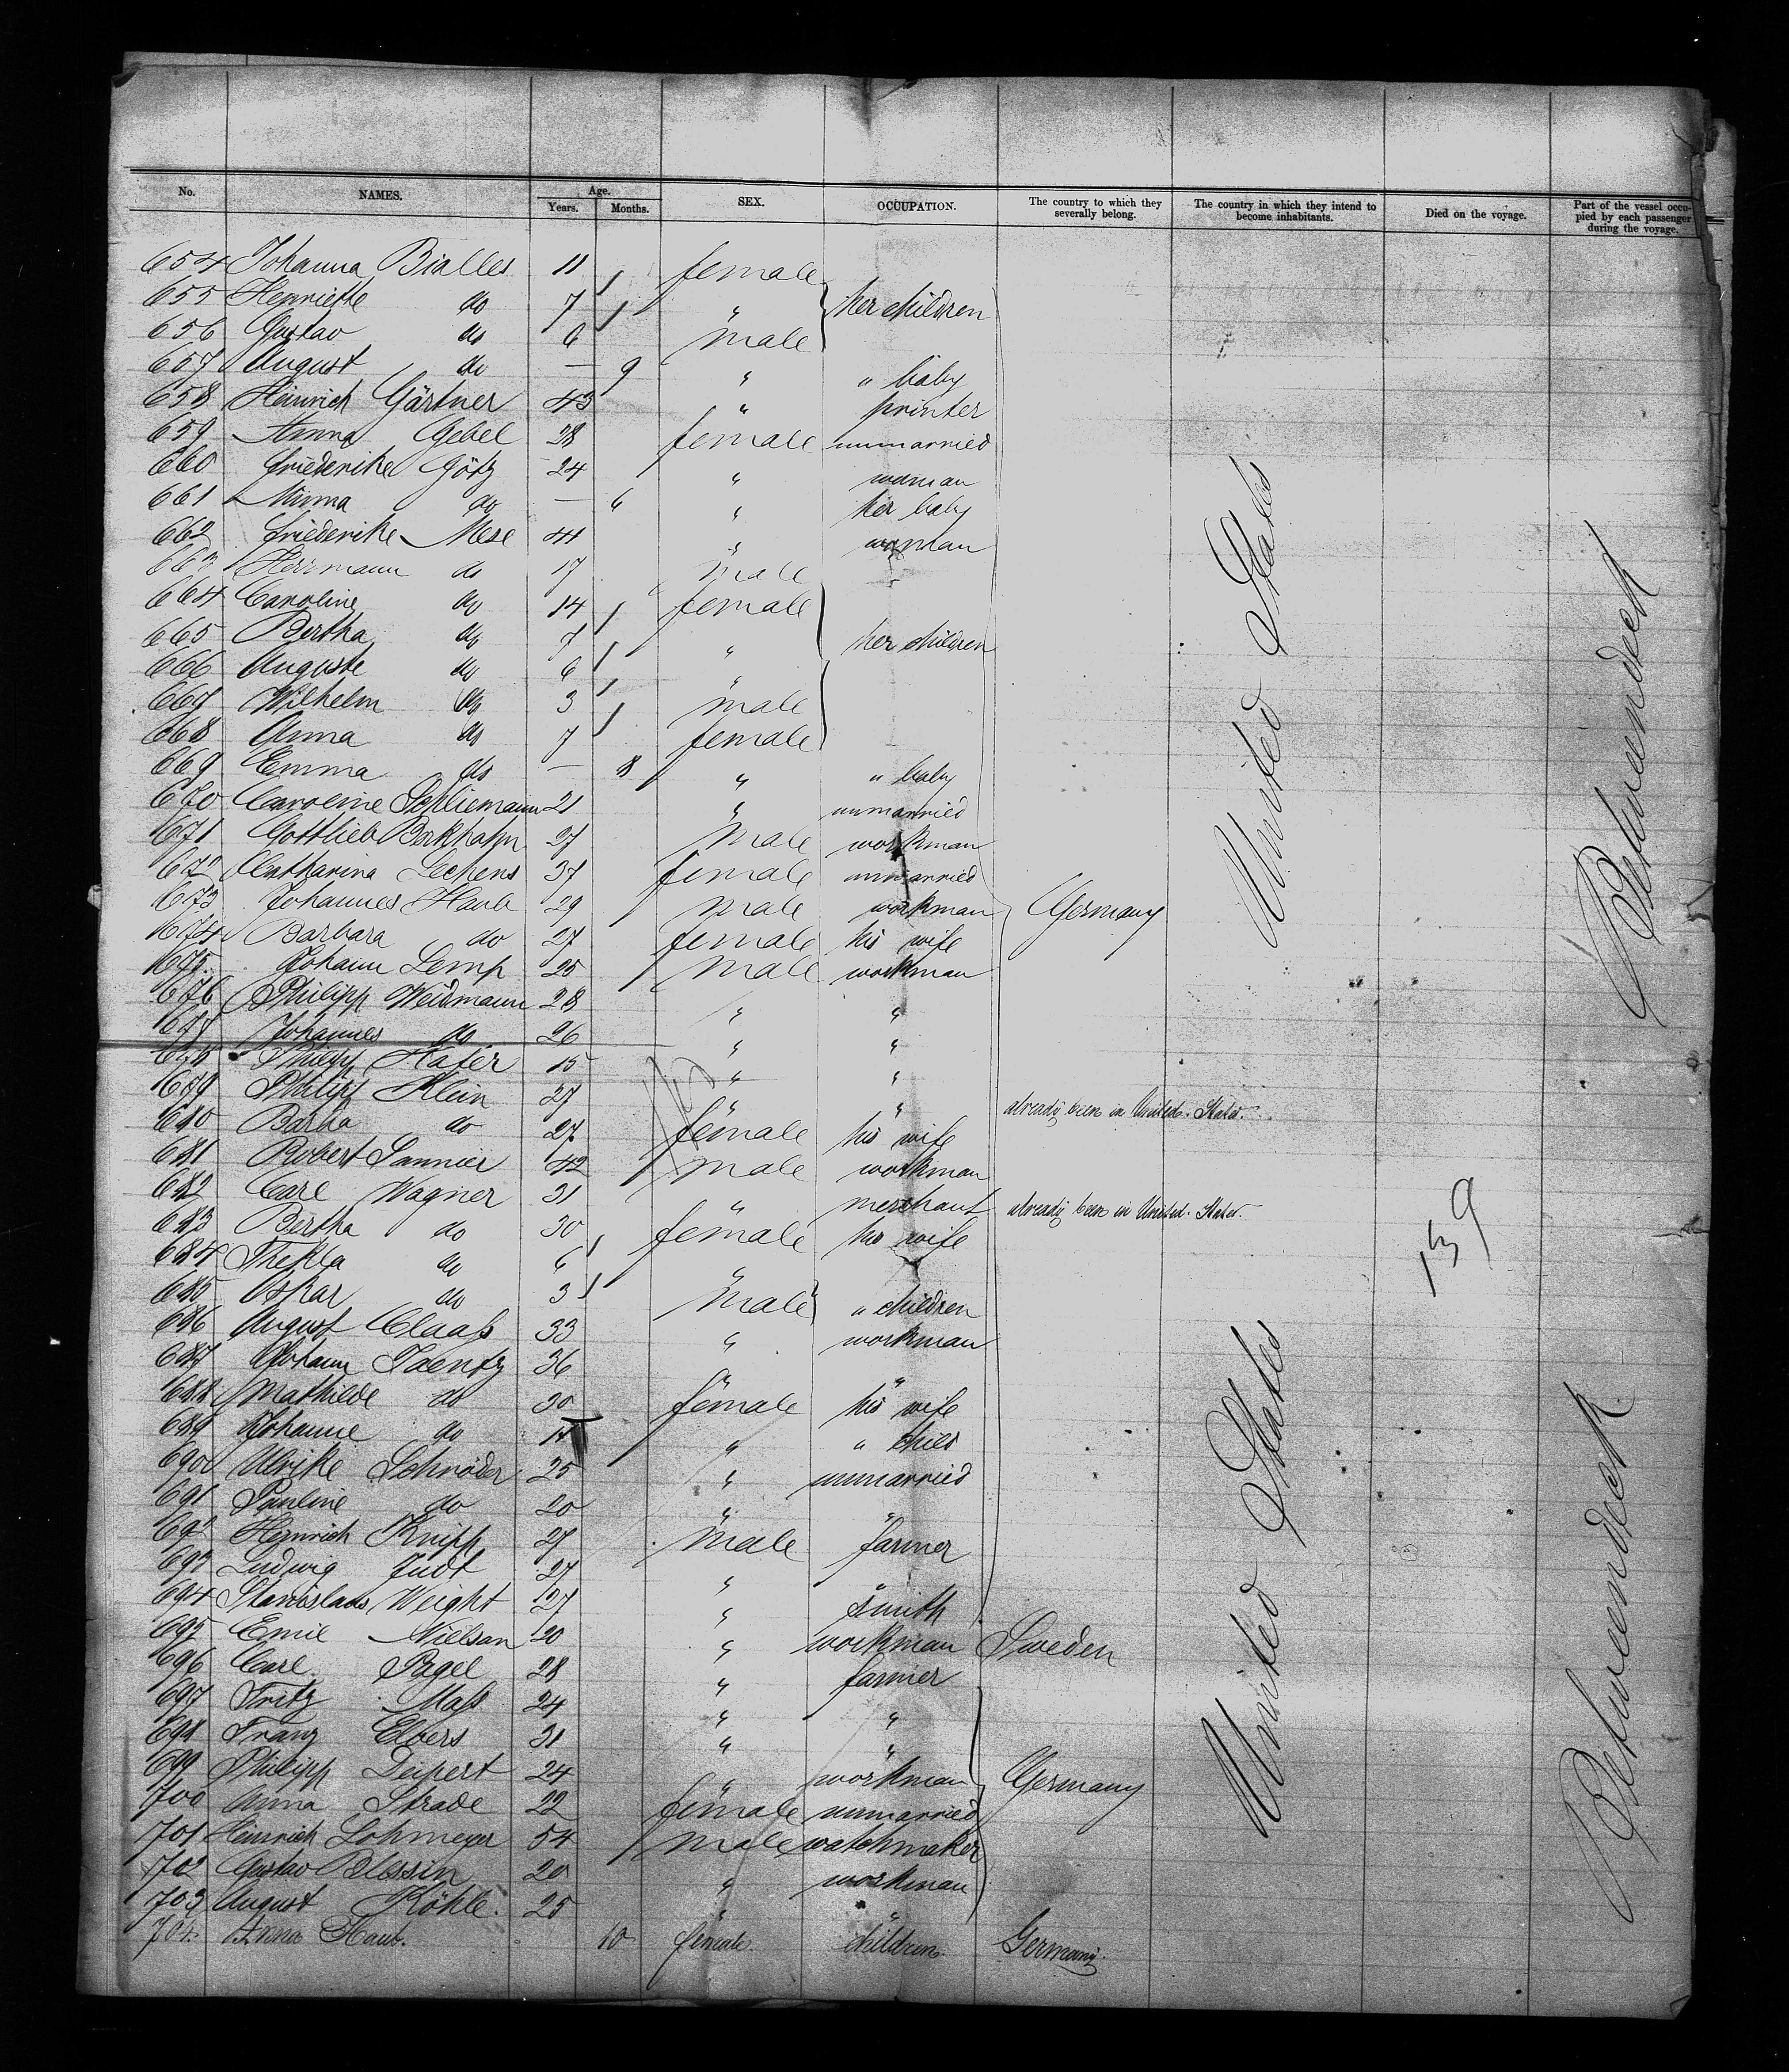 No. NAMES. Age. Years. Months. SEX. OCCUPATION. The country to which they severally belong. The country in which they intend to become inhabitants. Died on the voyage. Part of the vessel occupied by each passenger during the voyage.
654 Johanna Bialles 11 female
655 Henriette do 7 " her children
656 Gustav do 6 male
657 August do — 9 " " baby
658 Heinrich Gärtner 43 " printer
659 Anna Gebel 28 female unmarried
660 Friederike Götz 24 " woman
661 Minna do — 6 " her baby
662 Friederike Mese 41 " woman
663 Herrmann do 17 male
664 Caroline do 14 female
665 Bertha do 7 " her children
666 Auguste do 6 "
667 Wilhelm do 3 male
668 Anna do 7 female
669 Emma do — 8 " " baby
670 Caroline Schliemann 21 " unmarried
671 Gottlieb Borkhahn 27 male workman
672 Catharina Lechens 37 female unmarried
673 Johannes Haub 29 male workman Germany
674 Barbara do 27 female his wife
675 Johann Lemp 25 male workman
676 Philipp Weidmann 28 " "
677 Johannes do 26 " "
678 Philipp Hafer 15 " "
679 Philipp Klein 27 " " already been in United States.
680 Barba do 27 female his wife
681 Robert Sannier 42 male workman
682 Carl Wagner 31 " merchant already been in United States.
683 Bertha do 30 female his wife
684 Thekla do 6 "
685 Oskar do 3 male " children
686 August Claaß 33 " workman
687 Johann Jaentz 36 " "
688 Mathilde do 30 female his wife
689 Johanne do " " child
690 Ulrike Schröder 25 " unmarried
691 Pauline do 20 " "
692 Heinrich Knipp 27 male farmer
693 Ludwig Judt 27 " "
694 Stanislaus Weight 27 " smith
695 Emil Nielsan 20 " workman Sweden
696 Carl Pagel 28 " farmer
697 Fritz Maß 24 " "
698 Franz Elvers 31 " "
699 Philipp Deipert 24 " workman Germany
700 Anna Strade 22 female unmarried
701 Heinrich Lohmeyer 54 male watchmaker
702 Gustav Blessin 20 " workman
703 August Köhle. 25 " "
704. Anna Haub. 10 female children Germany.
United States
Betweendeck
159
United States
Betweendeck